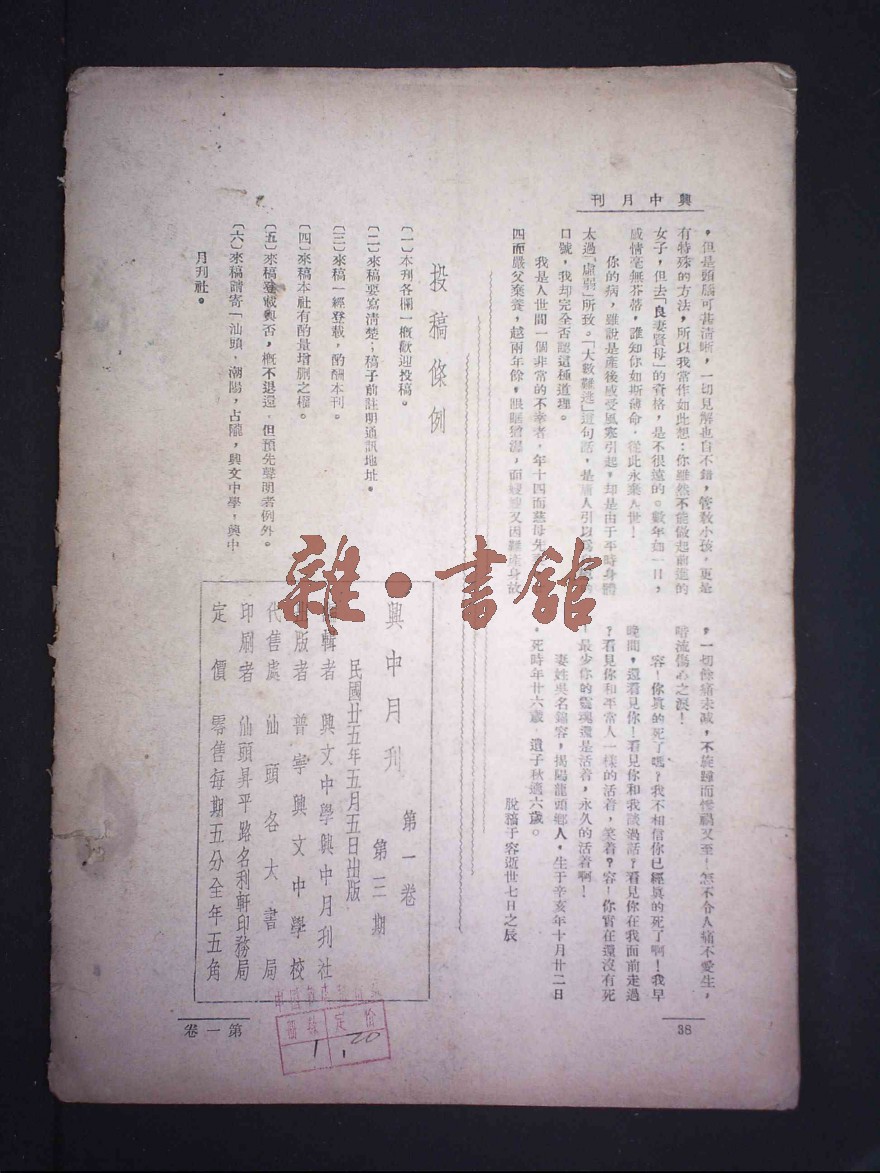 興中月刊
，但是頭腦可甚清晰，一切見解也自不錯，管教小孩，更是
有特殊的方法，所以我當作如此想：你雖然不能做起前進的
女子，但去「良妻賢母」的資格，是不很遠的。數年如一日，
感情毫無芥蒂，誰知你如斯薄命，從此永棄人世！
你的病，雖說是產後感受風寒引起，却是由于平時身體
太過「虛弱」所致。「大數難逃」這句話，是庸人引以
口號，我却完全否認這種道理。
我是人世間一個非常的不幸者，年十四而慈母先
四而嚴父棄養，越兩年餘，眼眶猶濕，而 又因難產身故
，一切餘痛未減，不旋踵而慘禍又至！怎不令人痛不愛生，
暗流傷心之淚！
容！你真的死了嗎？我不相信你已經真的死了啊！我早
晚間，還看見你！看見你和我談過話？看見你在我面前走過
？看見你和平常人一樣的活着，笑着？容！你實在還沒有死
！最少你的靈魂還是活着，永久的活着啊！
妻姓吳名錦容，揭陽龍頭鄉人，生于辛亥年十月廿二日
，死時年廿六歲，遺子秋適六歲。
脫稿于容逝世七日之辰
投稿條例
（一）本刊各欄一概歡迎投稿。
（二）來稿要寫清楚；稿子前註明通訊地址。
（三）來稿一經登載，酌酬本刊。
（四）來稿本社有酌量增删之權。
（五）來稿登載與否，概不退還，但預先聲明者例外。
（六）來稿請寄「汕頭，潮陽，占隴，興文中學，興中
月刊社。
興中月刊 第一卷
第二三期
民國廿五年五月五日出版
輯者 興文中學興中月刊社
版者 普寧興文中學校
代售處 汕頭各大書局
印刷者 汕頭昇平路名利軒印務局
定價 零售每期五分全年五角
38
第一卷
雜·書館
定價
1.20